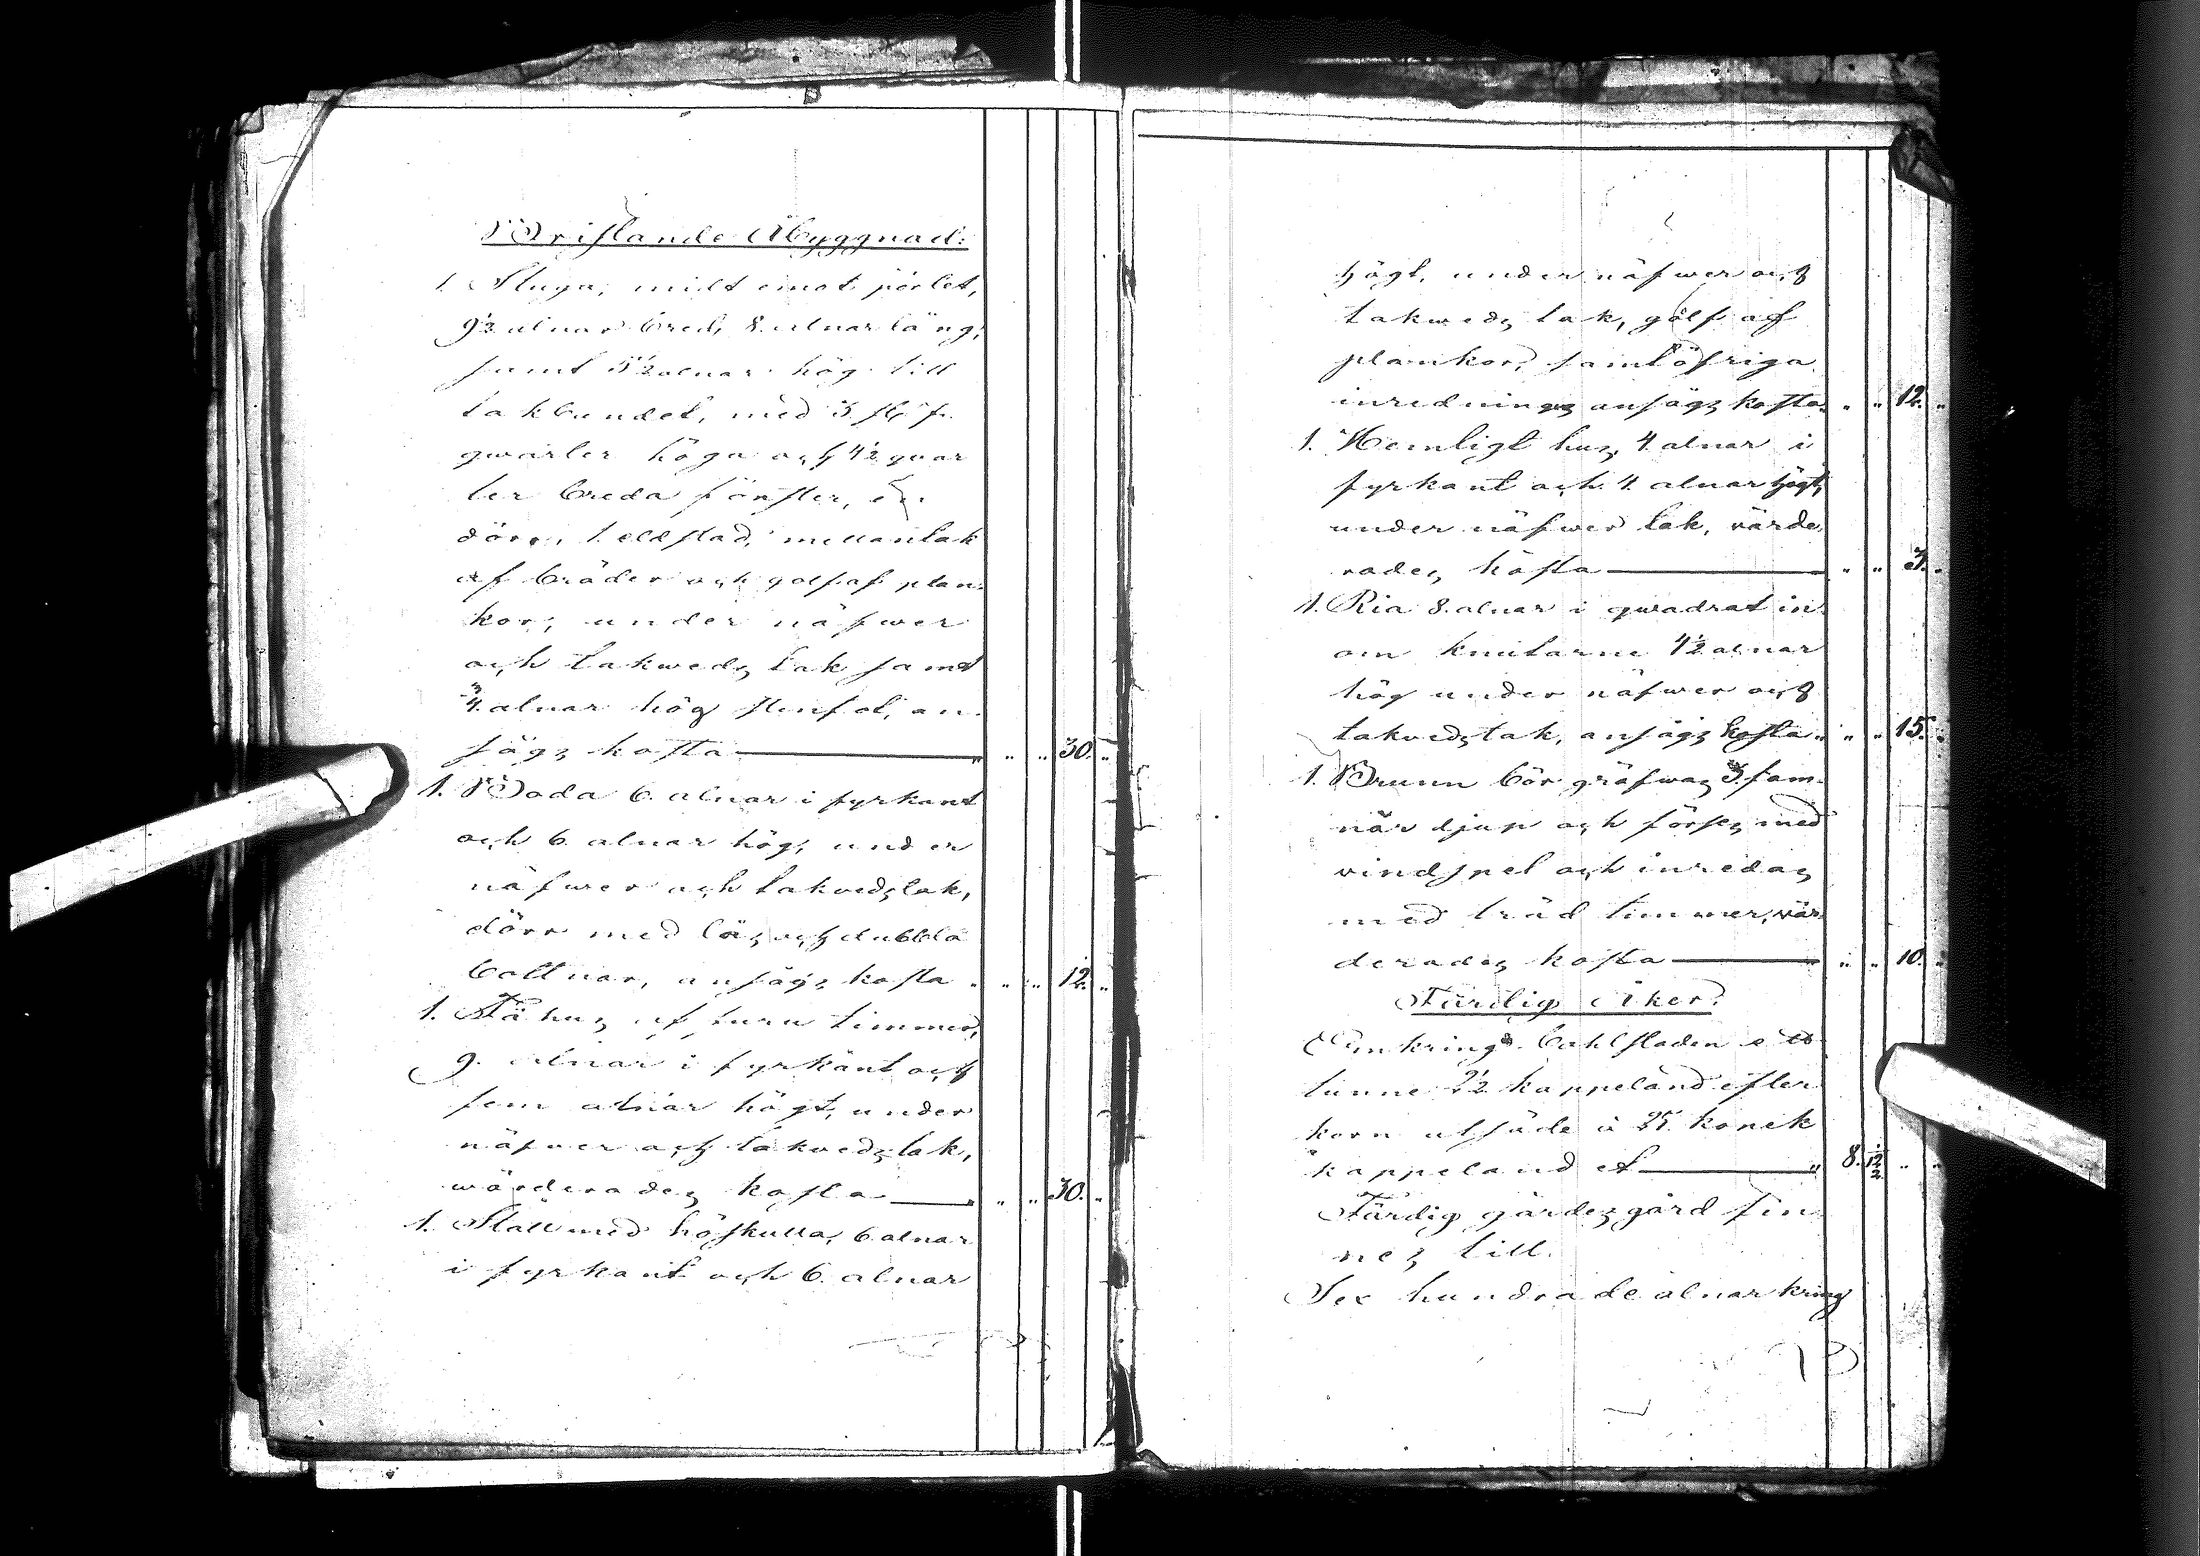 Bristande Åbyggnad:
1. Stuga, midt emot pörtet,
9½ alnar bred, 8. alnar lång,
samt 5½ alnar hög till
takbandet, med 3. st. 5
qwarter höga och 4½ qwar
ter breda fönster, en
dörr, 1. eldstad, mellantak
af bräder och golf af plan-
kor, under näfwer
och takweds tak samt
¾ alnar hög stenfot, an-
sågs kosta " " " 30. "
1. Boda 6. alnar i fyrkant
och 6. alnar hög, under
näfwer och takvedstak,
dörr med lås och dubbla
bottnar, ansågs kosta " " " 12. "
1. Fähus af furu timmer,
9. alnar i fyrkant och
fem alnar högt, under
näfwer och takvedstak,
wärderades kosta " " " 30. "
1. Stall med höskulla, 6 alnar
i fyrkant och 6. alnar
högt, under näfwer och
takweds tak, golf af
plankor, samt öfriga
inrednings ansågs kosta " " 12. "
1. Hemligt hus, 4 alnar i
fyrkant och 4. alnar högt,
under näfwer tak, värde-
rades kosta " " 3. "
1. Ria 8. alnar i qwadrat in-
om knutarne 4½ alnar
hög under näfwer och
takvedstak, ansågs kosta " " " 15. "
1. Brunn bör gräfwas 3. fam-
nar djup och förses med
vindspel och inredas
med träd timmer, vär-
derades kosta " " 10. "
Färdig Åker.
Omkring bohlstaden ett
tunne 2½ kappeland efter
korn utsäde à 25. kop: ett
kappeland ef " 8. 12½ " "
Färdig gärdesgård fin-
nes till.
Sex hundrade alnar kring